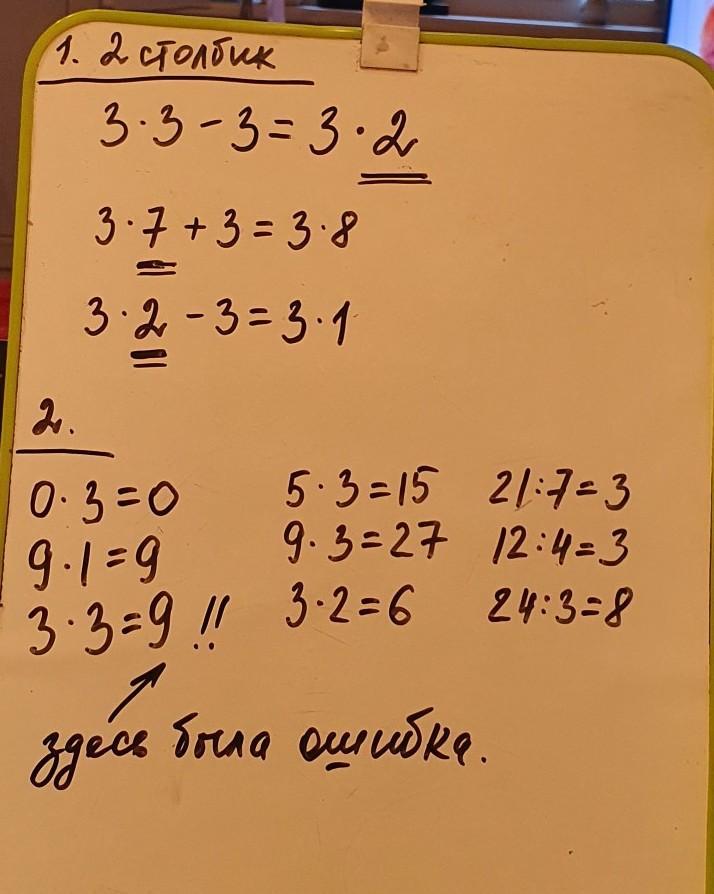 1. 2 столбик
3·3-3=3·2
3·7+3=3·8
3·2-3=3·1
2.
0·3=0 5·3=15 21:7=3
9·1=9 9·3=27 12:4=3
3·3=9!! 3·2=6 24:3=8
здесь была ошибка.